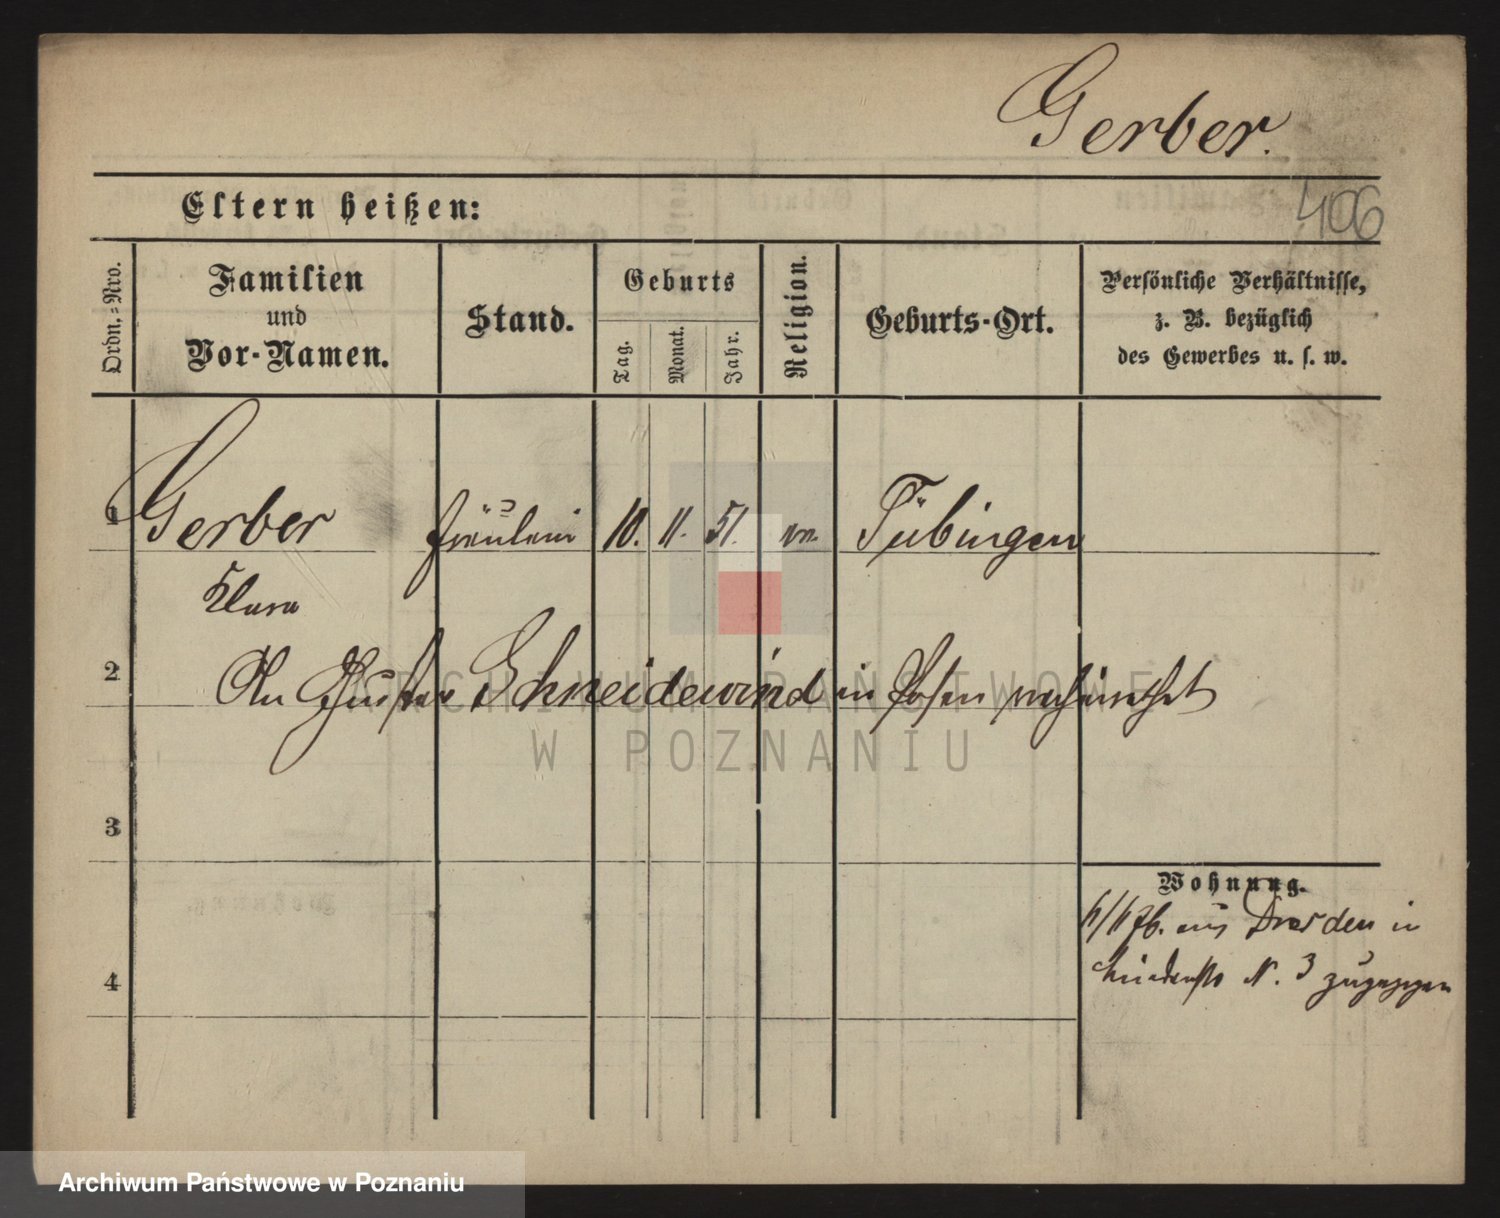 Gerber.
406
Eltern heißen:
Ordn.-Nro.
Familien
und
Vor-Namen.
Stand.
Geburts
Tag.
Monat.
Jahr.
Religion.
Geburts-Ort.
Persönliche Verhältnisse,
z. B. bezüglich
des Gewerbes u. s. w.
1 Gerber Fräulein 10. 11. 51. ev. Tübingen
Klara
2 An Gustav Schneidewind in Posen verheirathet
ARCHIWUM PAŃSTWOWE
W POZNANIU
3
Wohnung.
76. aus Dresden in
4 N. 3 zugezogen
Archiwum Państwowe w Poznaniu